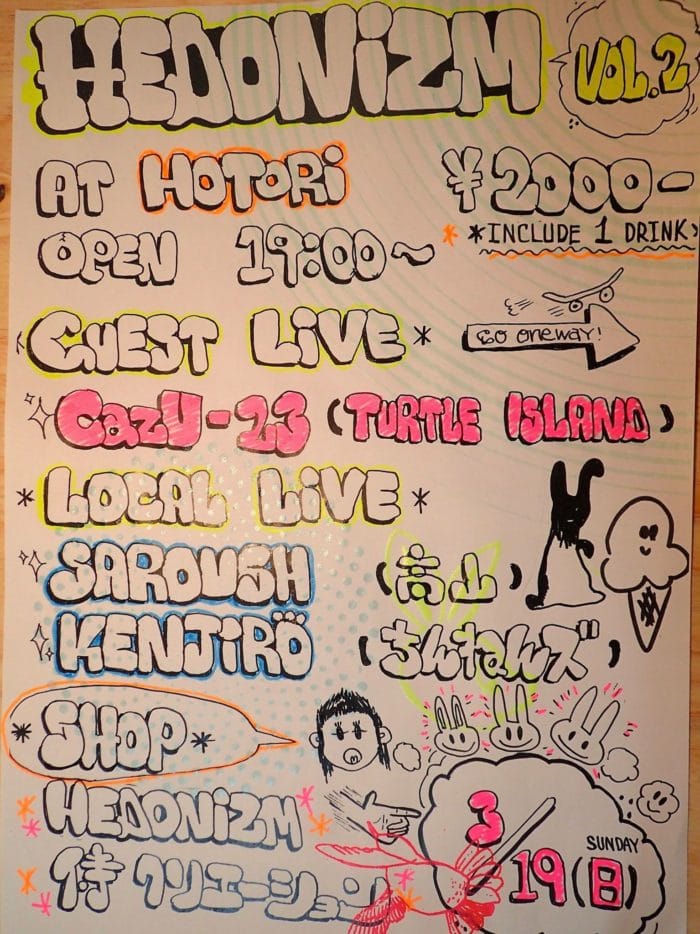 HEDONiZM VOL.2
AT HOTORi ¥2000-
**INCLUDE 1 DRINK
OPEN 19:00~
GUEST LiVE*
GO ONEWAY!
CazY-23 (TURTLE ISLAND)
*LOCAL LiVE*
SAROUSH (高山)
KENJiRÖ (ちんねんズ)
*SHOP*
HEDONiZM
侍クリエーション
3/19(日)
SUNDAY